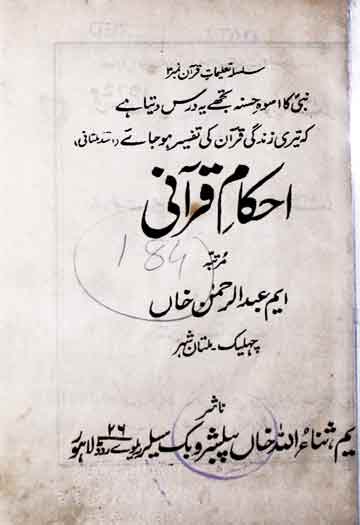 سلسلہ تعلیمات قرآن نمبر ۳
نبیؐ کا اسوۂ حسنہ تجھے یہ درس دیتا ہے
کہ تیری زندگی قرآن کی تفسیر ہو جائے (اسد ملتانی)
احکامِ قرآنی
184
مرتبہ
ایم عبدالرحمٰن خاں
چہلیک - ملتان شہر
ناشر
یم، ثناء اللہ خاں پبلشر و بک سیلر ۲۶ ریلوے روڈ لاہور